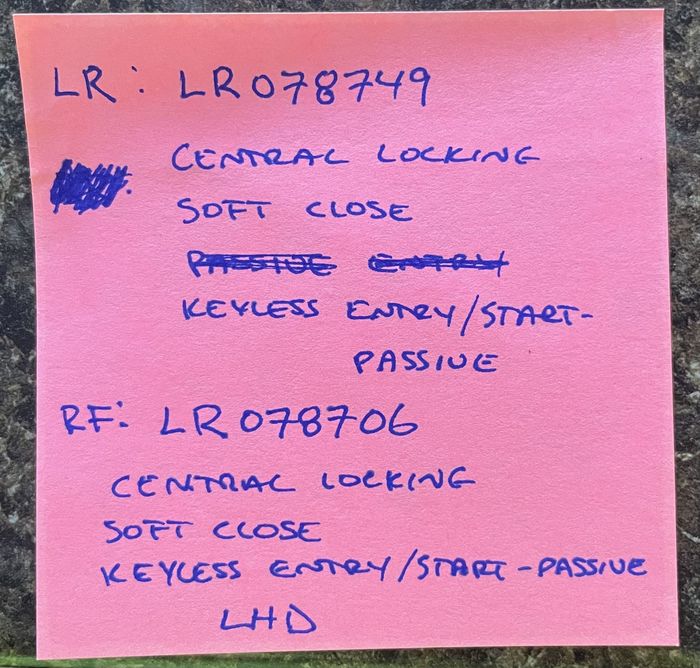 LR: LR078749
CENTRAL LOCKING
SOFT CLOSE
PASSIVE ENTRY
KEYLESS ENTRY/START-
PASSIVE
RF: LR078706
CENTRAL LOCKING
SOFT CLOSE
KEYLESS ENTRY/START-PASSIVE
LHD